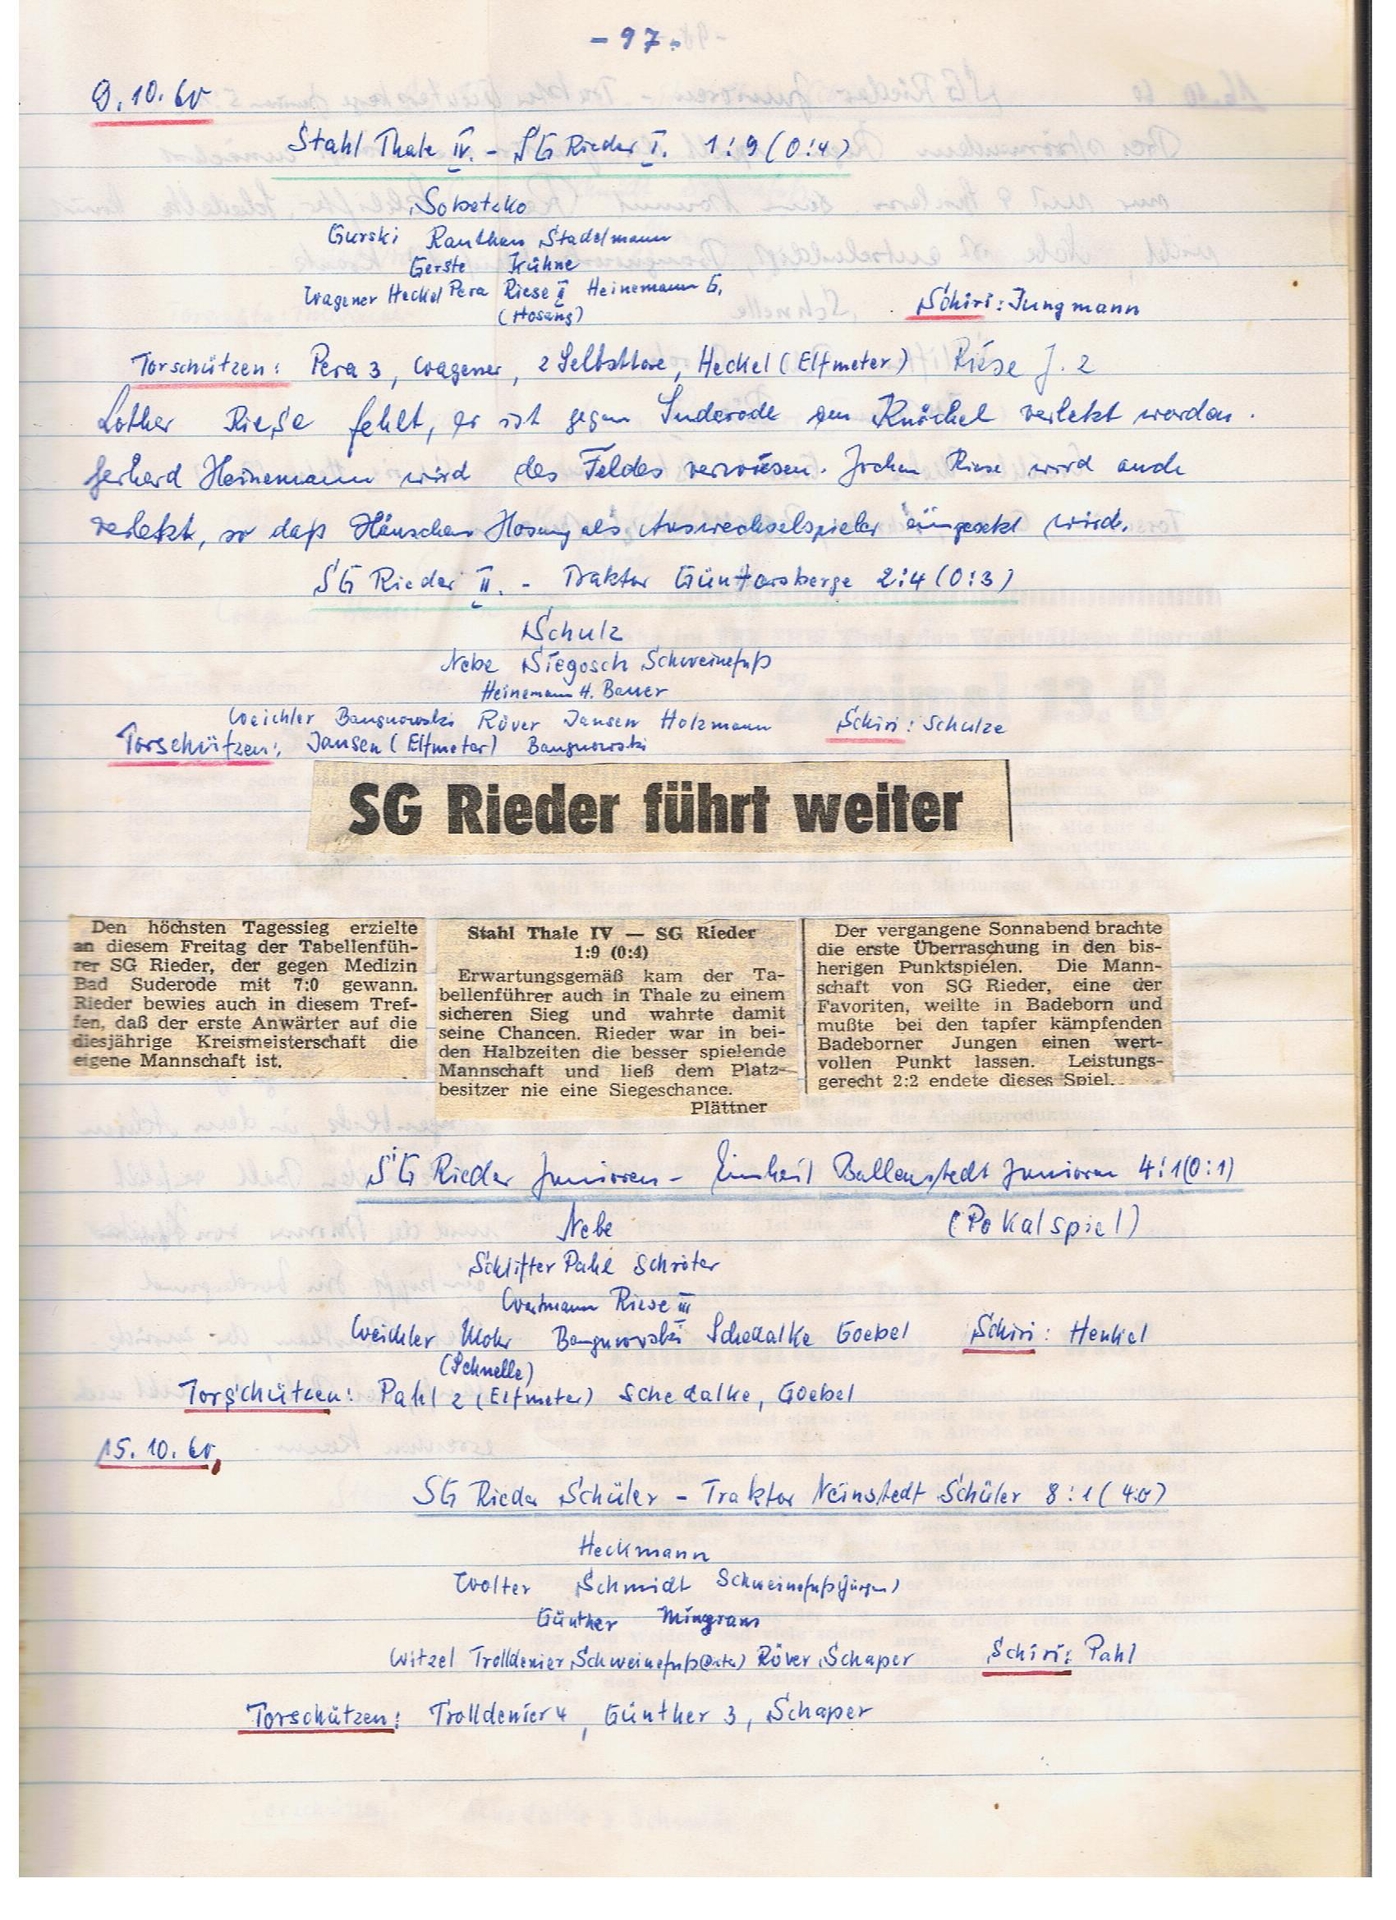 - 97.
9.10.60
Stahl Thale IV. - SG Rieder I. 1:9 (0:4)
Sobetzko
Gurski Ranthan Stadelmann
Gerste Kühne
Wagener Heckel Pera Riese II Heinemann G.
(Hosang)
Schiri: Jungmann
Torschützen: Pera 3, Wagener, 2 Selbsttore, Heckel (Elfmeter) Riese J. 2
Lothar Riese fehlt, er ist gegen Suderode am Knöchel verletzt worden.
Gerhard Heinemann wird des Feldes verwiesen. Jochen Riese wird auch
verletzt, so daß Hänschen Hosang als Auswechselspieler eingesetzt wird.
SG Rieder II. - Traktor Güntersberge 2:4 (0:3)
Schulz
Nebe Siegosch Schweinefuß
Heinemann H. Bauer
Weichler Bangnowski Röver Jansen Holzmann Schiri: Schulze
Torschützen: Jansen (Elfmeter) Bangnowski
SG Rieder führt weiter
Den höchsten Tagessieg erzielte
an diesem Freitag der Tabellenfüh-
rer SG Rieder, der gegen Medizin
Bad Suderode mit 7:0 gewann.
Rieder bewies auch in diesem Tref-
fen, daß der erste Anwärter auf die
diesjährige Kreismeisterschaft die
eigene Mannschaft ist.
Stahl Thale IV — SG Rieder
1:9 (0:4)
Erwartungsgemäß kam der Ta-
bellenführer auch in Thale zu einem
sicheren Sieg und wahrte damit
seine Chancen. Rieder war in bei-
den Halbzeiten die besser spielende
Mannschaft und ließ dem Platz-
besitzer nie eine Siegeschance.
Plättner
Der vergangene Sonnabend brachte
die erste Überraschung in den bis-
herigen Punktspielen. Die Mann-
schaft von SG Rieder, eine der
Favoriten, weilte in Badeborn und
mußte bei den tapfer kämpfenden
Badeborner Jungen einen wert-
vollen Punkt lassen. Leistungs-
gerecht 2:2 endete dieses Spiel.
SG Rieder Junioren - Einheit Ballenstedt Junioren 4:1 (0:1)
Nebe (Pokalspiel)
Schlifter Pahl Schröter
Wartmann Riese III
Weichler Mohr Bangnowski Schedalke Goebel Schiri: Henkel
(Schnelle)
Torschützen: Pahl 2 (Elfmeter) Schedalke, Goebel
15.10.60
SG Rieder Schüler - Traktor Neinstedt Schüler 8:1 (4:0)
Heckmann
Wolter Schmidt Schweinefuß (Jürgen)
Günther Mingram
Witzel Trolldenier Schweinefuß Röver Schaper Schiri: Pahl
Torschützen: Trolldenier 4, Günther 3, Schaper